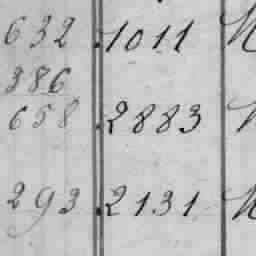 632 .1011
386
658 .2883
293 .2131